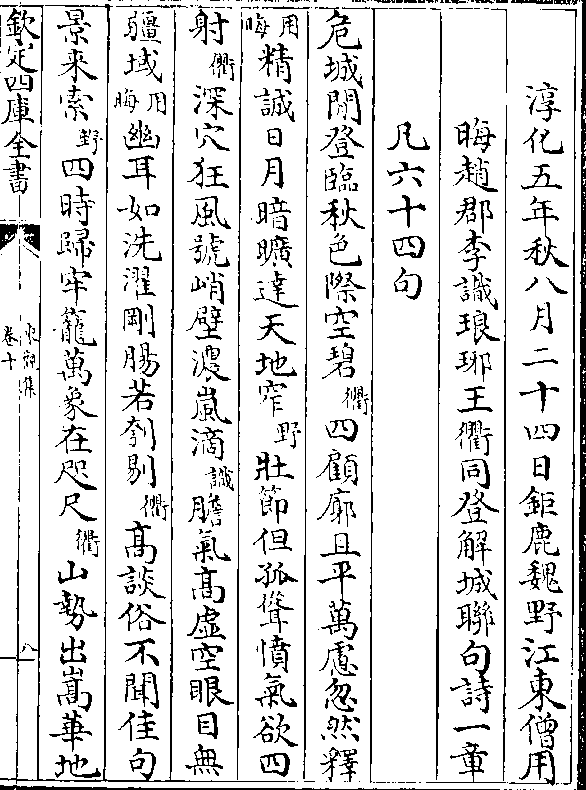 淳化五年秋八月二十四日鉅鹿魏野江東僧用
晦趙郡李識琅琊王衢同登解城聯句詩一章
凡六十四句
危城閒登臨秋色際空碧衢四顧廓且平萬慮忽然釋
用晦精誠日月暗曠達天地窄野壯節但孤聳憤氣欲四
射衢深穴狂風號峭壁濃嵐滴識膽氣高虛空眼目無
疆域用晦幽耳如洗濯剛腸若刳剔衢高談俗不聞佳句
景来索野四時歸牢籠萬象在咫尺衢山勢出嵩華地
欽定四庫全書
卷十
八